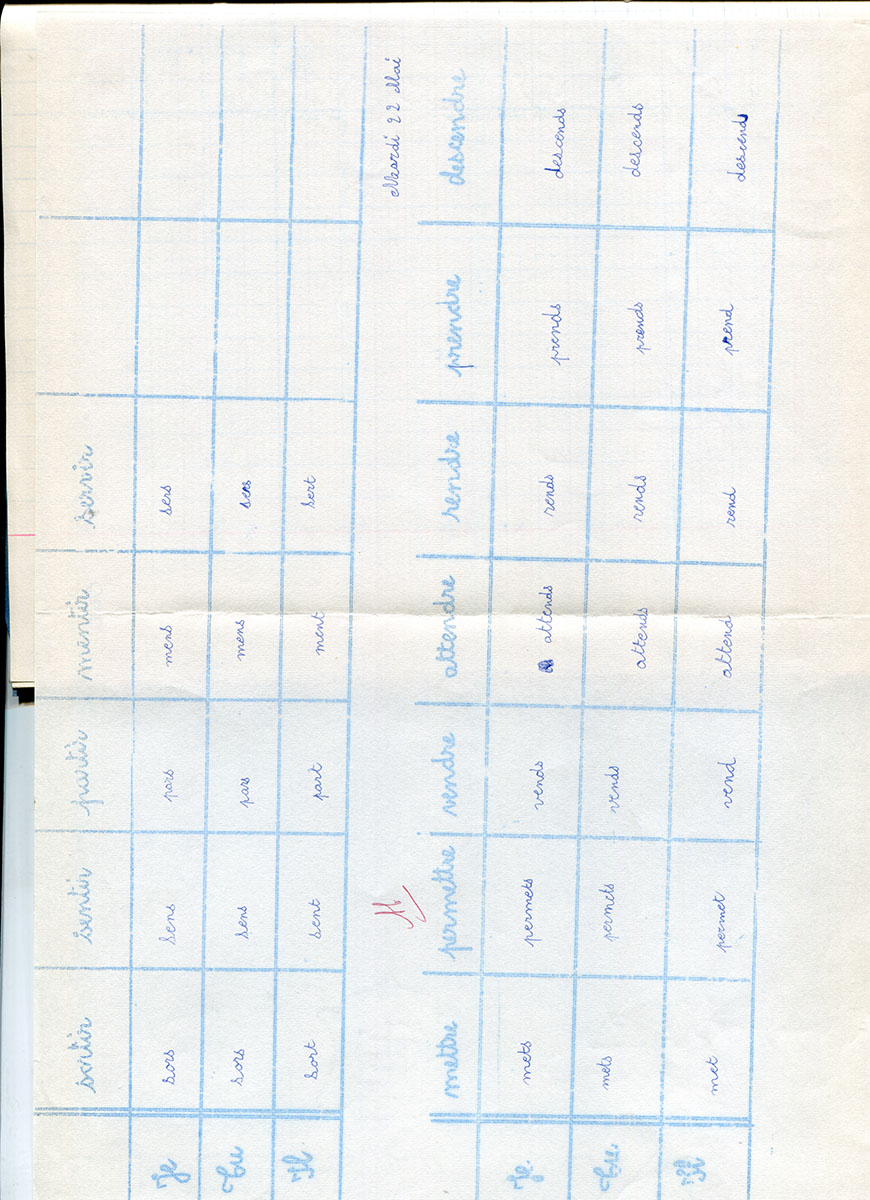 sortir sentir partir mentir servir
Je sors sens pars mens sers
Tu sors sens pars mens sers
Il sort sent part ment sert
Mardi 22 Mai
mettre permettre vendre attendre rendre prendre descendre
Je. mets permets vends attends rends prends descends
Tu. mets permets vends attends rends prends descends
Il met permet vend attend rend prend descend